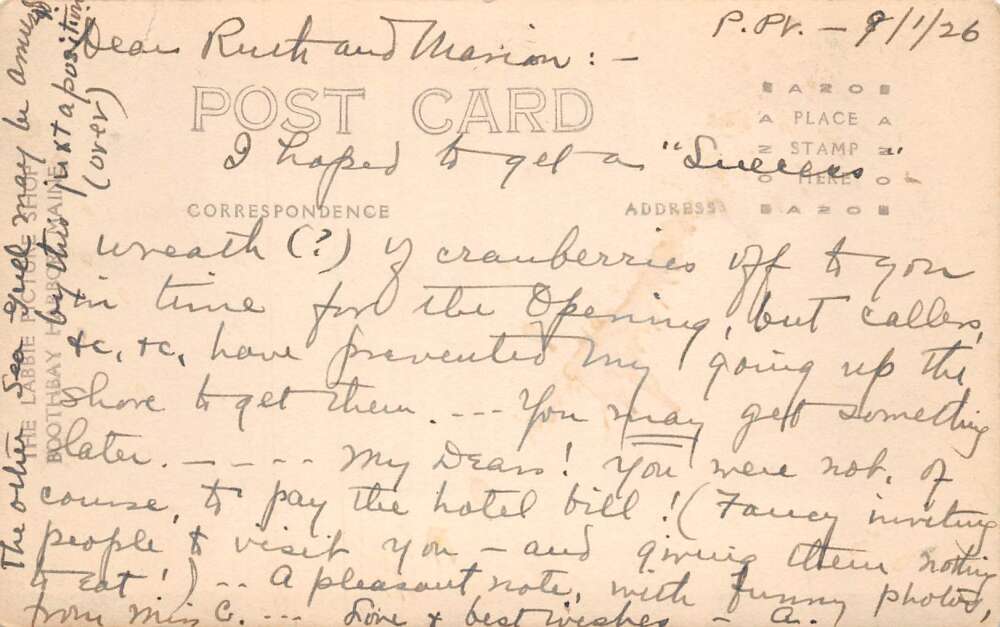 P. Pt. — 9/1/26
Dear Ruth and Marion : —
POST CARD
A Z O
PLACE
STAMP
HERE
A Z O
I hoped to get a "Success"
CORRESPONDENCE
ADDRESS
wreath (?) of cranberries off to you
in time for the Opening, but callers,
&c, &c, have prevented my going up the
Shore to get them. --- You may get something
later. — — — — My Dears! You were not, of
course, to pay the hotel bill! (Fancy inviting
people to visit you — and giving them nothing
to eat!) -- A pleasant note, with funny photos,
from Miss G. --- Love & best wishes — A.
The other Sea Gull may be amused
by this juxtaposition
(over)
THE LABBIE PICTURE SHOP
BOOTHBAY HARBOR, MAINE